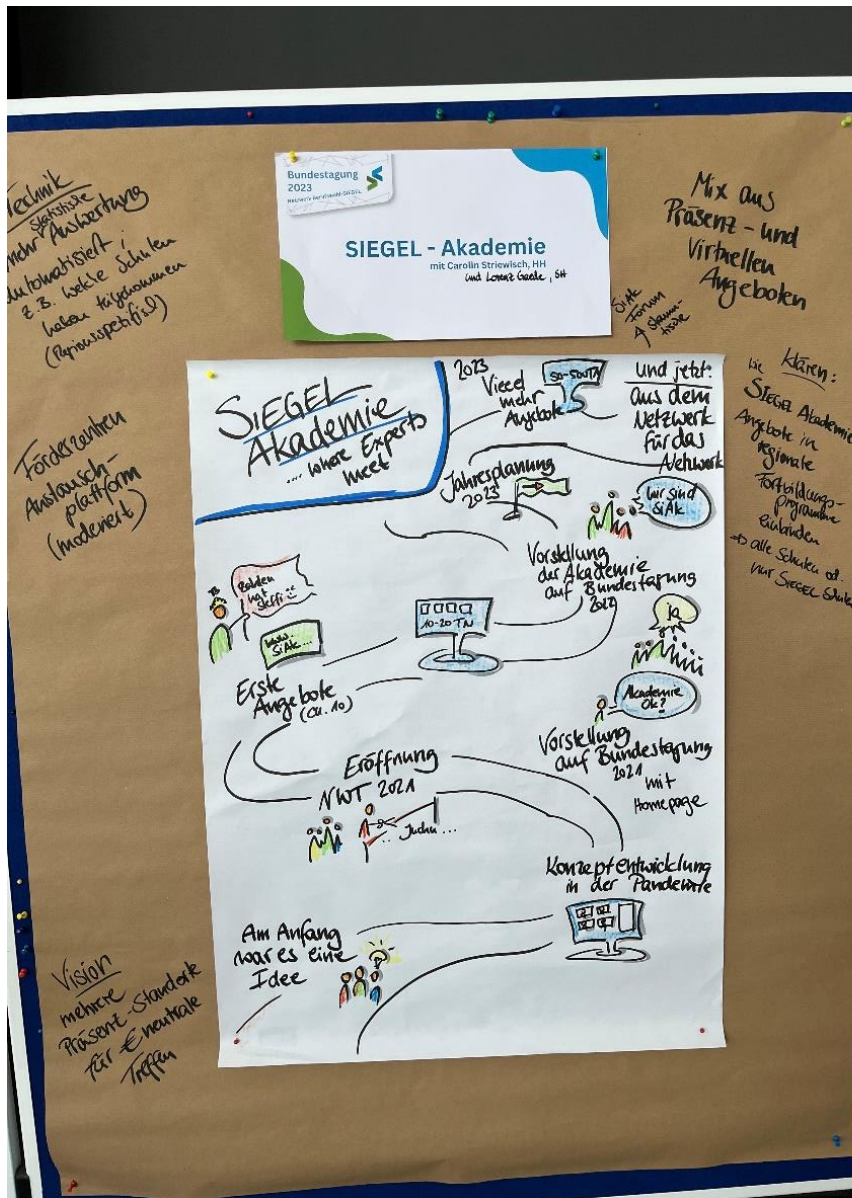 Bundestagung
2023
Netzwerk Berufswahl-SIEGEL
SIEGEL - Akademie
mit Carolin Striewisch, HH
und Lorenz Gaede, SH
Technik
Statistische
mehr Auswertung
automatisiert;
z.B. welche Schulen
haben teilgenommen
(Regionsspezifisch)
Förderzentren
Austausch-
plattform
(moderiert)
Vision
mehrere
Präsenz-Standorte
für € neutrale
Treffen
Mix aus
Präsenz- und
Virtuellen
Angeboten
SiAk
Forum
Stamm-
tische
klären:
wie
SIEGEL Akademie
Angebote in
regionale
Fortbildungs-
programme
einbinden
=> alle Schulen od.
nur SIEGEL Schulen
SIEGEL
Akademie
... where Experts
meet
2023
Vieeel
mehr
Angebote
50-500TN
und jetzt:
aus dem
Netzwerk
für das
Netzwerk
Jahresplanung
2023
Wir sind
SiAk
Vorstellung
der Akademie
auf Bundestagung
2022
10-20 TN
hat Steffi
SiAk...
Erste
Angebote
(ca. 10)
ja
Akademie
Ok?
Vorstellung
auf Bundestagung
2021
mit
Homepage
Eröffnung
NWT 2021
.. Juchu ...
Konzeptentwicklung
in der Pandemie
Am Anfang
war es eine
Idee